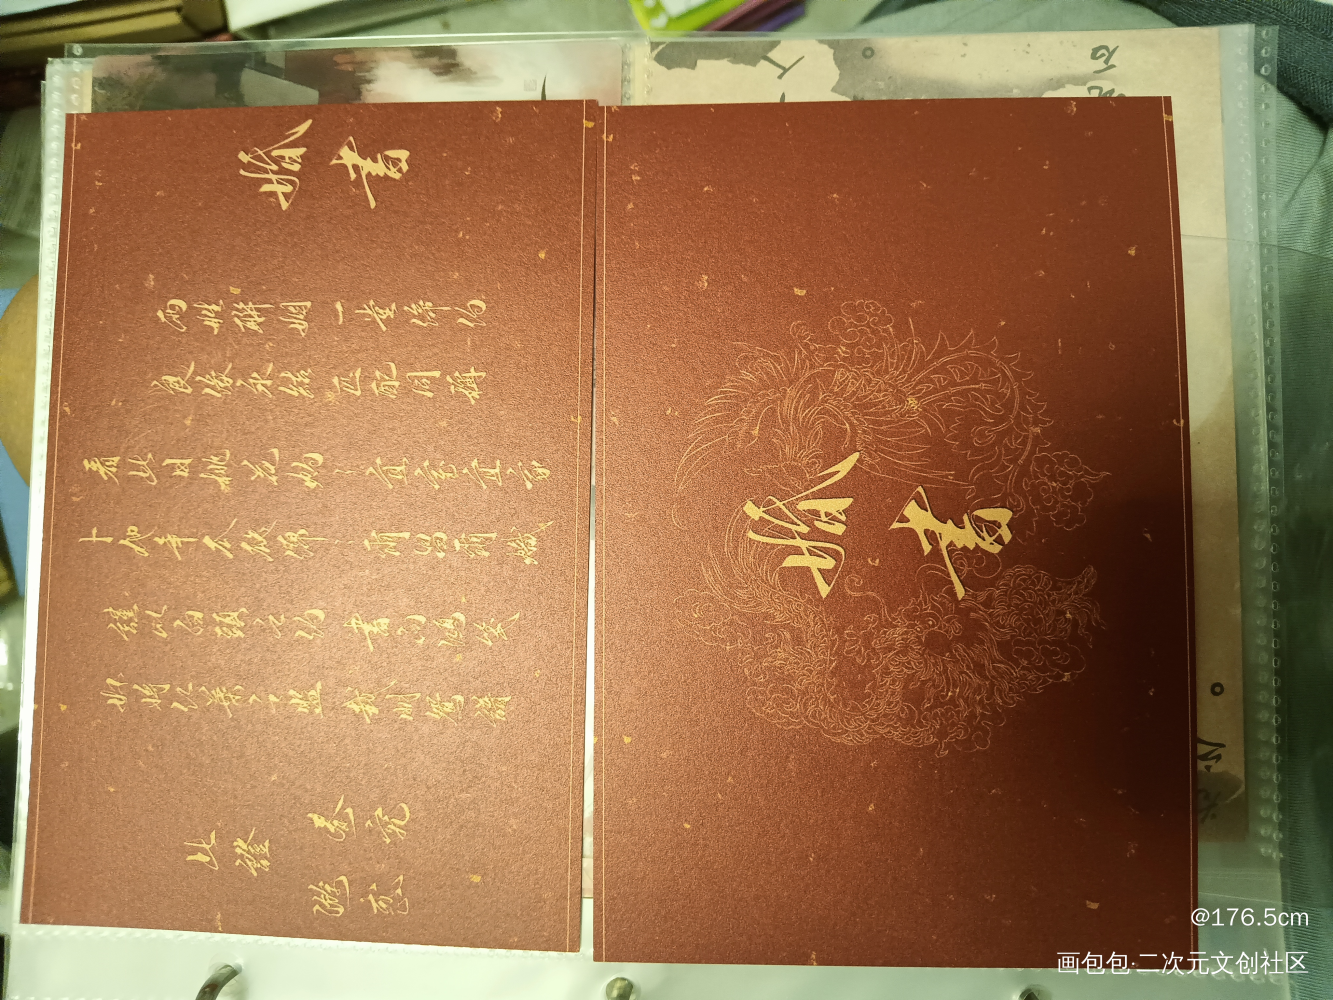 婚書
兩姓聯姻 一堂締約
良緣永結 匹配同稱
看此日桃花灼灼 宜室宜家
卜他年瓜瓞綿綿 爾昌爾熾
謹以白頭之約 書向鴻箋
好將紅葉之盟 載明鴛譜
此證
秦究
游惑
婚書
@176.5cm
画包包·二次元文创社区